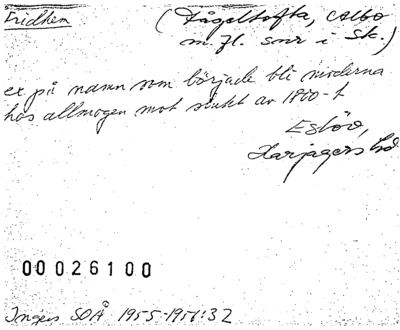 Fridhem
(Fågeltofta, Albo
m.fl. snr i Sk.)
ex på namn som började bli moderna
hos allmogen mot slutet av 1800-t
Eslöv,
Harjagers hd
00026100
Ingers SOÅ 1955-1957:32